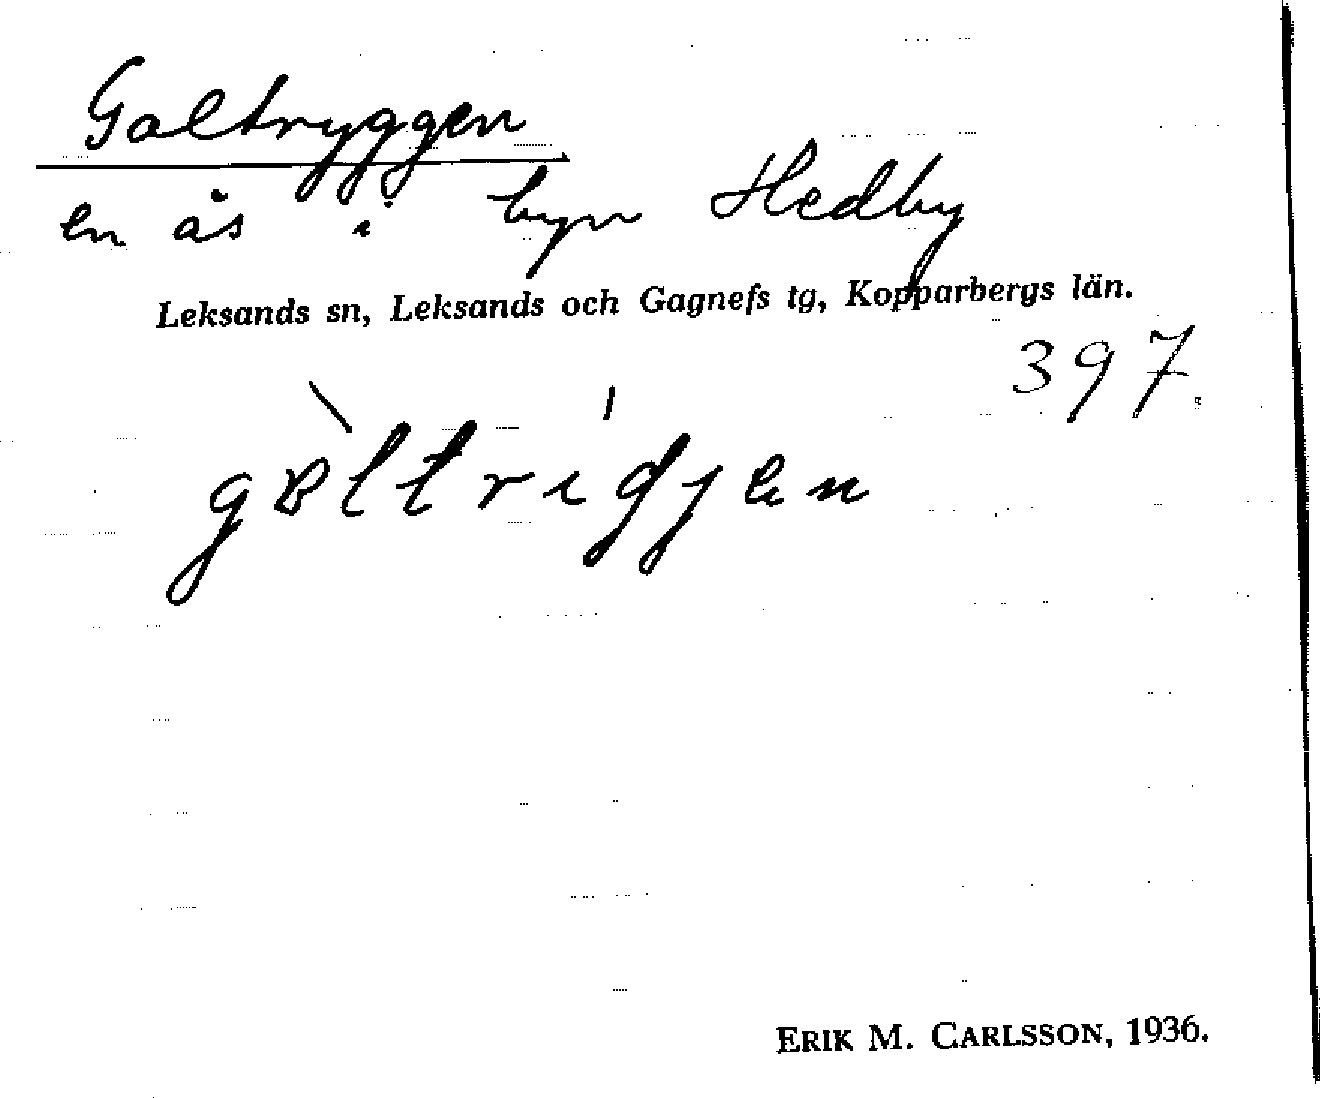 Galtryggen
en ås i byn Hedby
Leksands sn, Leksands och Gagnefs tg, Kopparbergs län.
397.
ERIK M. CARLSSON, 1936.